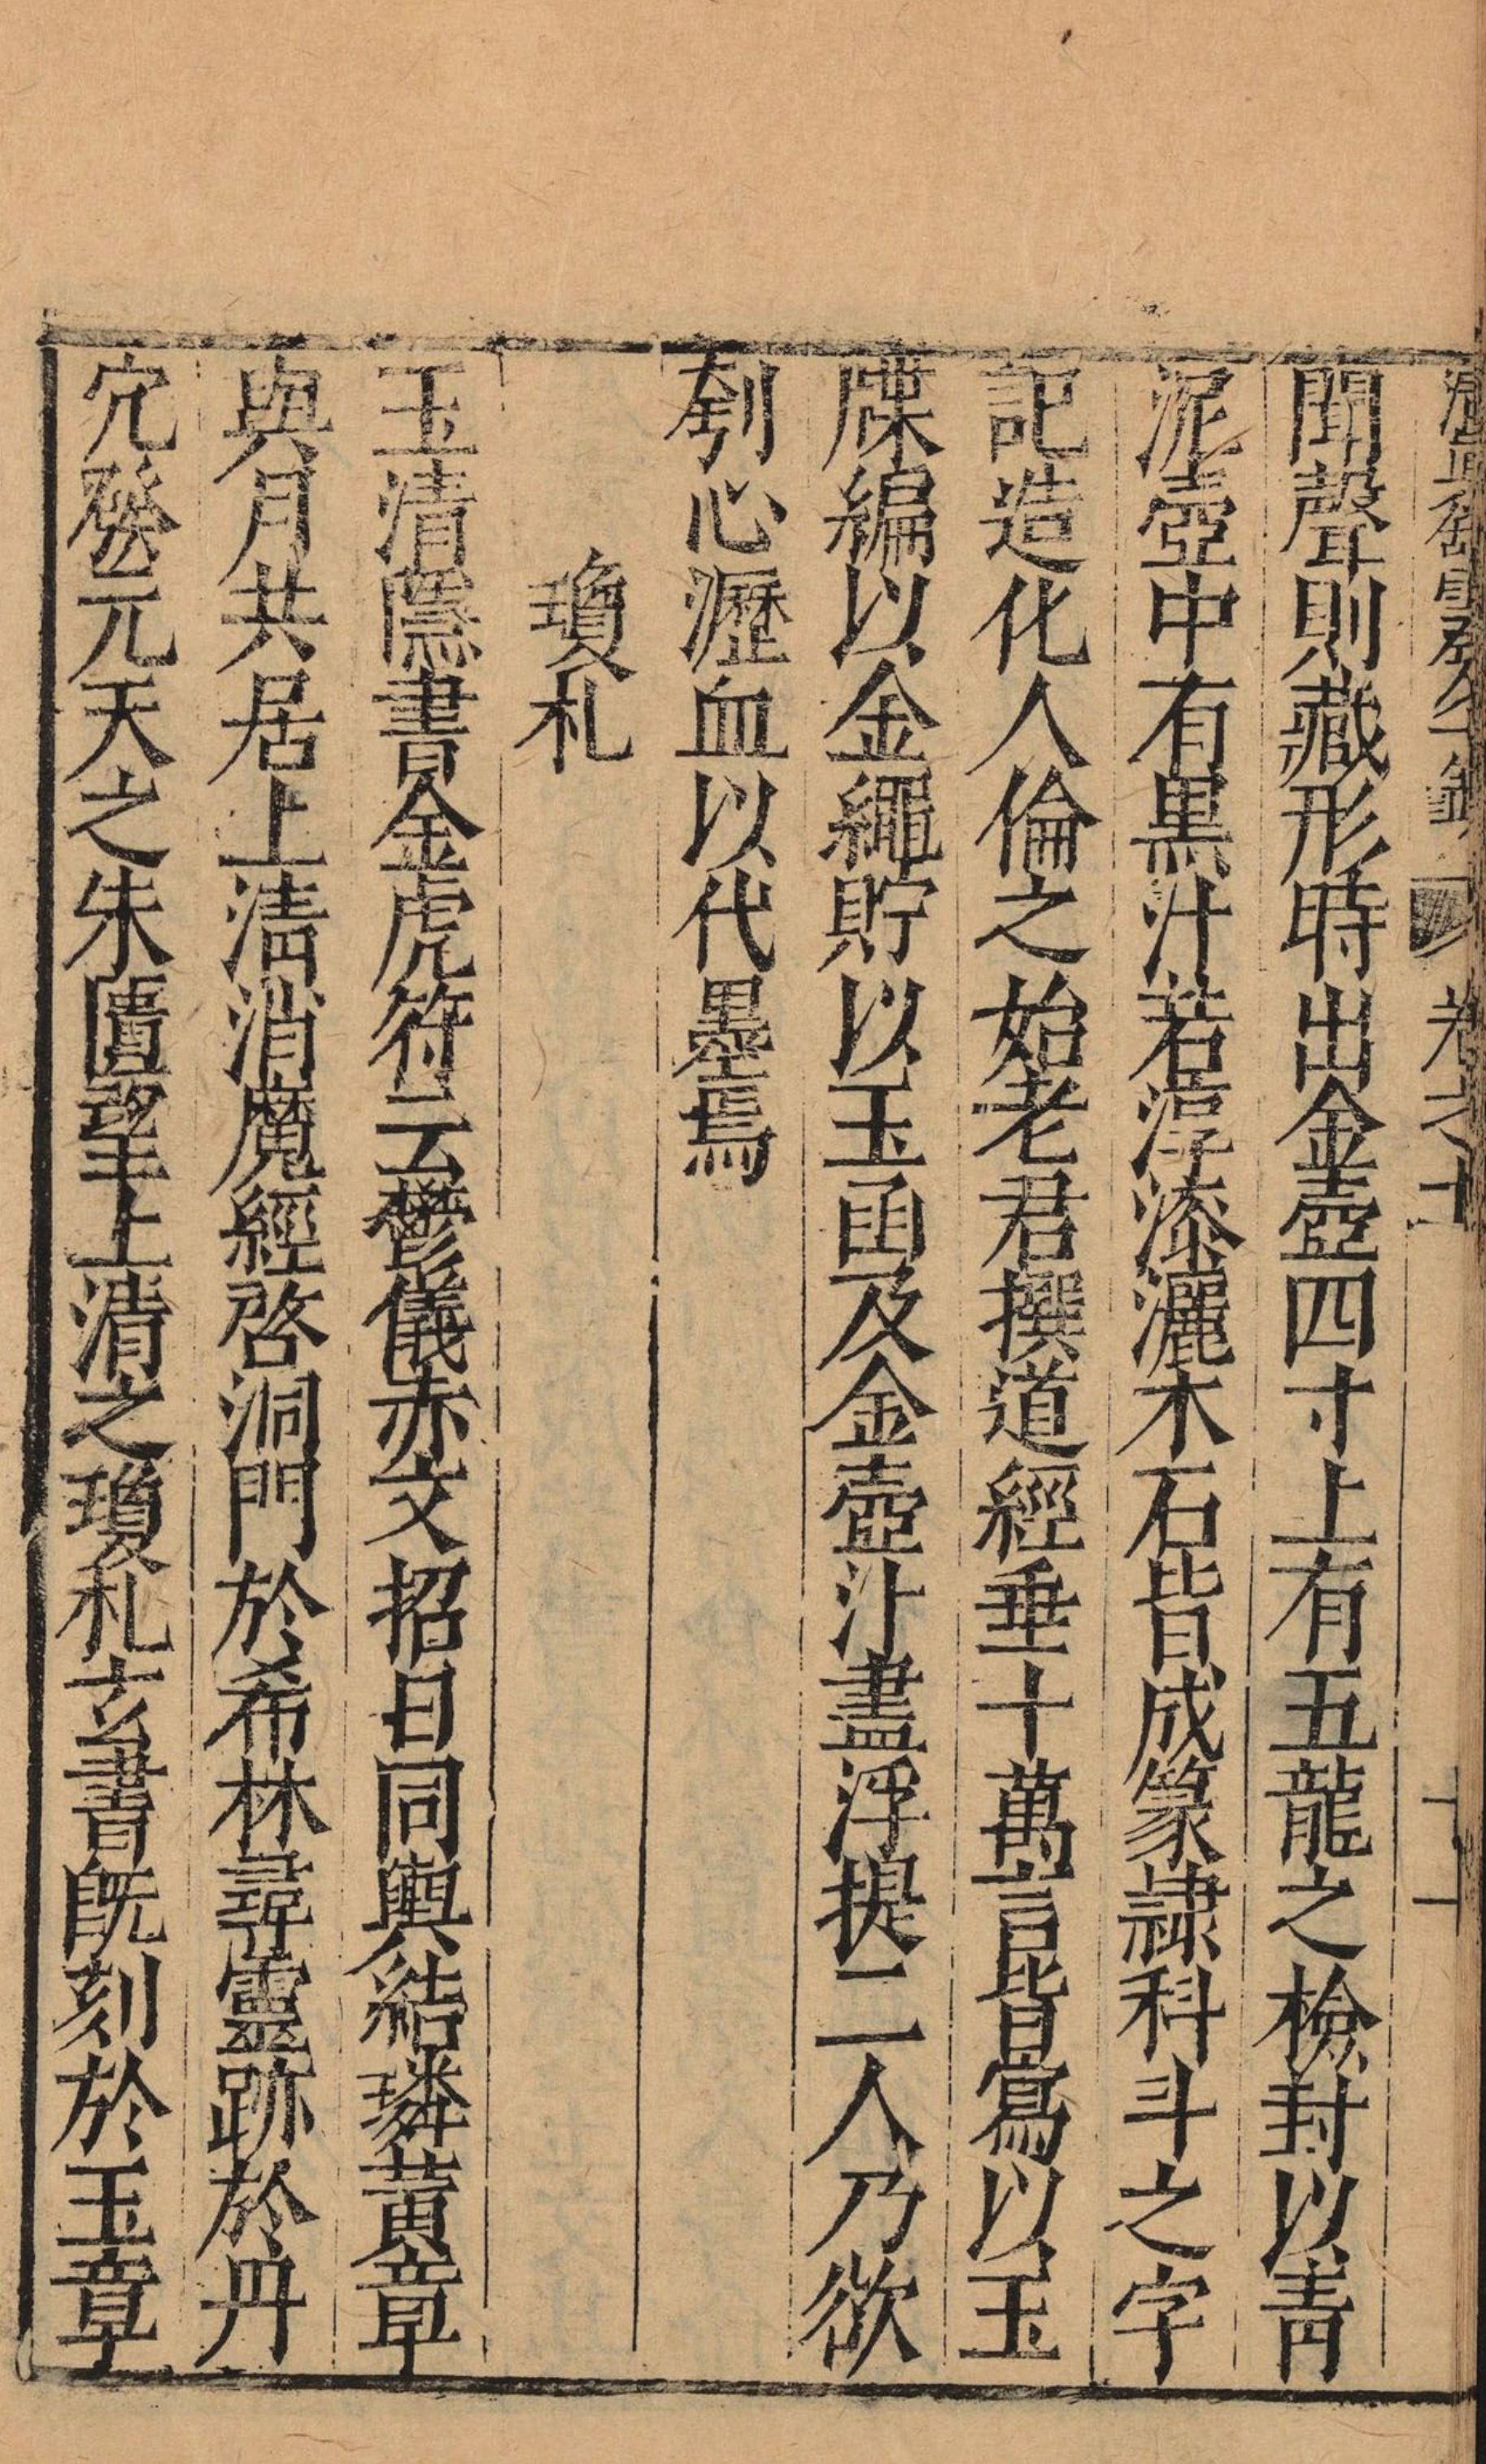 卷之十
十一
聞聲則藏形時出金壺四寸上有五龍之檢封以青
泥壺中有黑汁若淳漆灑木石皆成篆隷科斗之字
記造化人倫之始老君撰道經垂十萬言皆寫以玉
牒編以金繩貯以玉函及金壺汁盡浮提二人乃欲
刳心瀝血以代墨焉
瓊札
玉清隱書金虎符云鬱儀赤文招日同輿結璘黃章
與月共居上清消魔經啓洞門於希林尋靈跡於丹
穴發元天之朱匱望上清之瓊札玄書旣刻於玉章